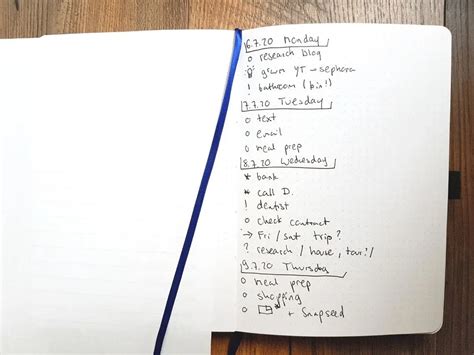 6.7.20 Monday
o research blog
grwm YT → sephora
! bathroom (bin!)
7.7.20 Tuesday
o text
o email
o meal prep
8.7.20 Wednesday
* bank
* call D.
! dentist
o check contract
→ Fri / Sat trip?
? research / house, tour? /
9.7.20 Thursday
o meal prep
o shopping
o + Snapseed